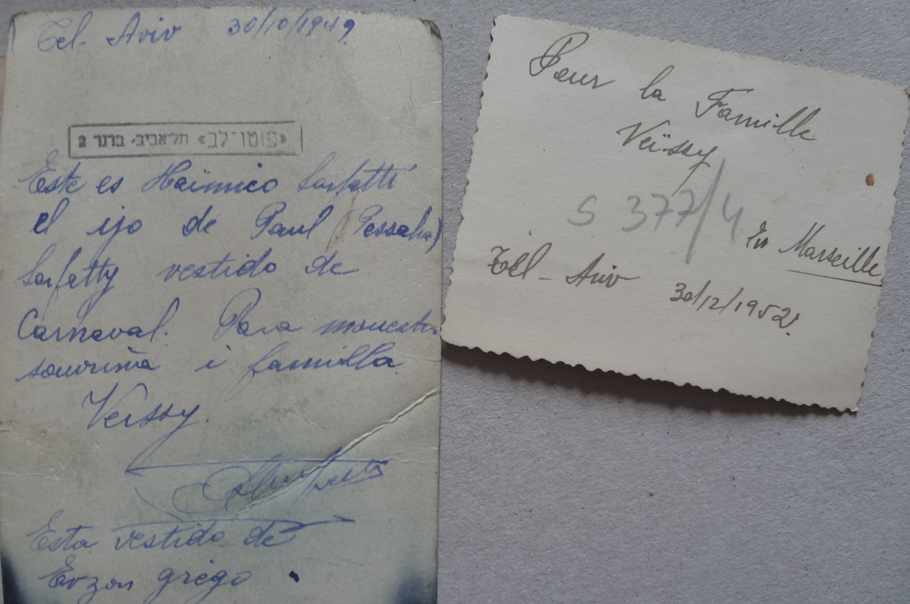 Tel-Aviv 30/10/1949
«פוטו-לב» תל-אביב· ברנר 2
Este es Haïmico Sarfatti
el ijo de Paul (Pessaha)
Sarfatty vestido de
Carnaval. Para mouestra
souvriña i familla
Veissy.
Esta vestido de
Evzon grego
Pour la Famille
Veïssy
S 377/4
En Marseille
Tèl-Aviv 30/12/1952